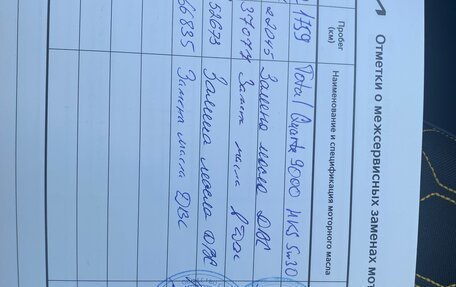 Отметки о межсервисных заменах мот
Пробег (км) Наименование и спецификация моторного масла
1759 Total Quartz 9000 HKS 5w30
22045 Замена масло ДВС
37074 Замена масла в Двс
52673 Замена масла ДВС
66835 Замена масла ДВС